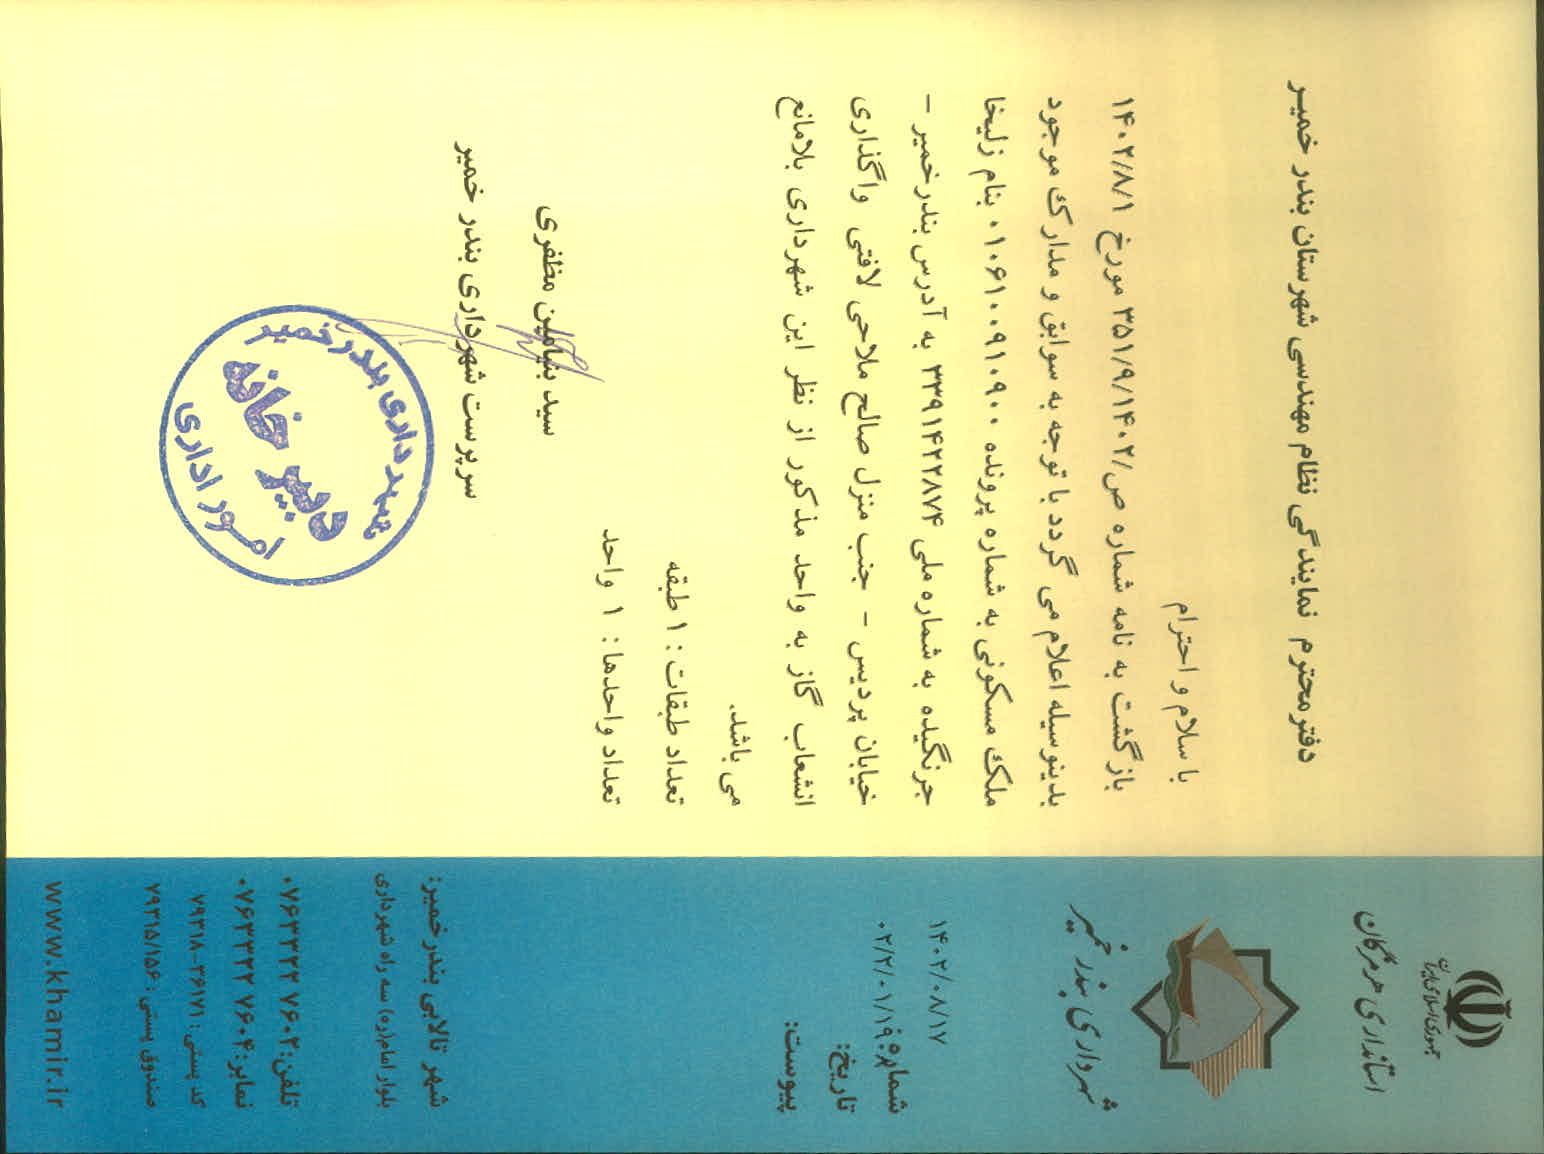 جمهوری اسلامی ایران
استانداری هرمزگان
شهرداری بندر خمیر
۱۴۰۲/۰۸/۱۷
شماره:
تاریخ:
پیوست:
شهر تالابی بندرخمیر:
بلوار امام(ره) سه راه شهرداری
تلفن: ۰۷۶۳۳۲۲ ۷۶۰۲
نمابر: ۰۷۶۳۳۲۲ ۷۶۰۴
کد پستی: ۷۹۳۱۸-۳۶۱۷۱
صندوق پستی: ۷۹۳۱۵/۱۵۶
www.khamir.ir
دفتر محترم نمایندگی نظام مهندسی شهرستان بندر خمیر
با سلام و احترام
بازگشت به نامه شماره ص/۳۵۱/۹/۱۴۰۲ مورخ ۱۴۰۲/۸/۱
بدینوسیله اعلام می گردد با توجه به سوابق و مدارک موجود
ملک مسکونی به شماره پرونده ۰۱۰۶۱۰۰۹۱۰۹۰۰ بنام زلیخا
جرنگیده به شماره ملی ۳۳۹۱۴۲۲۸۷۴ به آدرس بندرخمیر -
خیابان پردیس - جنب منزل صالح ملاحی لافتی واگذاری
انشعاب گاز به واحد مذکور از نظر این شهرداری بلامانع
می باشد.
تعداد طبقات : ۱ طبقه
تعداد واحدها : ۱ واحد
سید بنیامین مظفری
سرپرست شهرداری بندر خمیر
شهرداری بندر خمیر
دبیرخانه
امور اداری